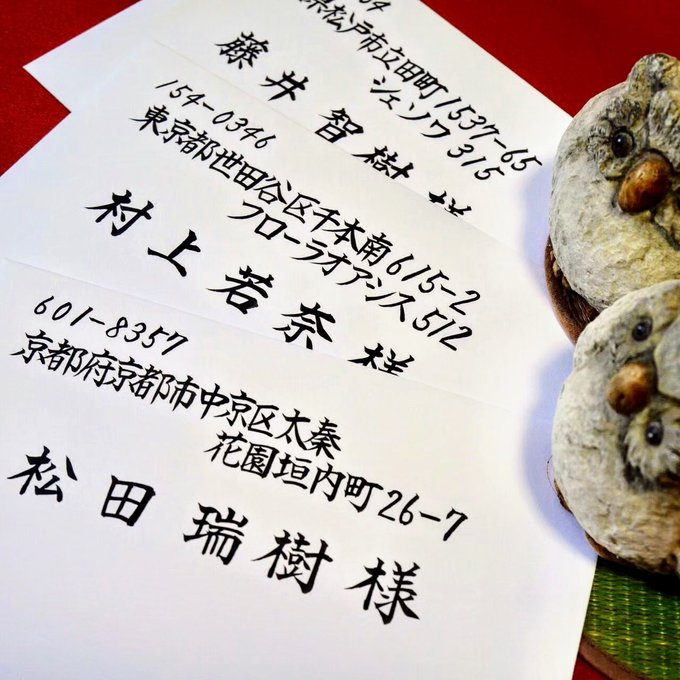 04
県松戸市立田町1537-65
シェソワ315
藤井智樹様
154-0346
東京都世田谷区千本南615-2
フローラオアシス512
村上若奈様
601-8357
京都府京都市中京区太秦
花園垣内町26-7
松田瑞樹様